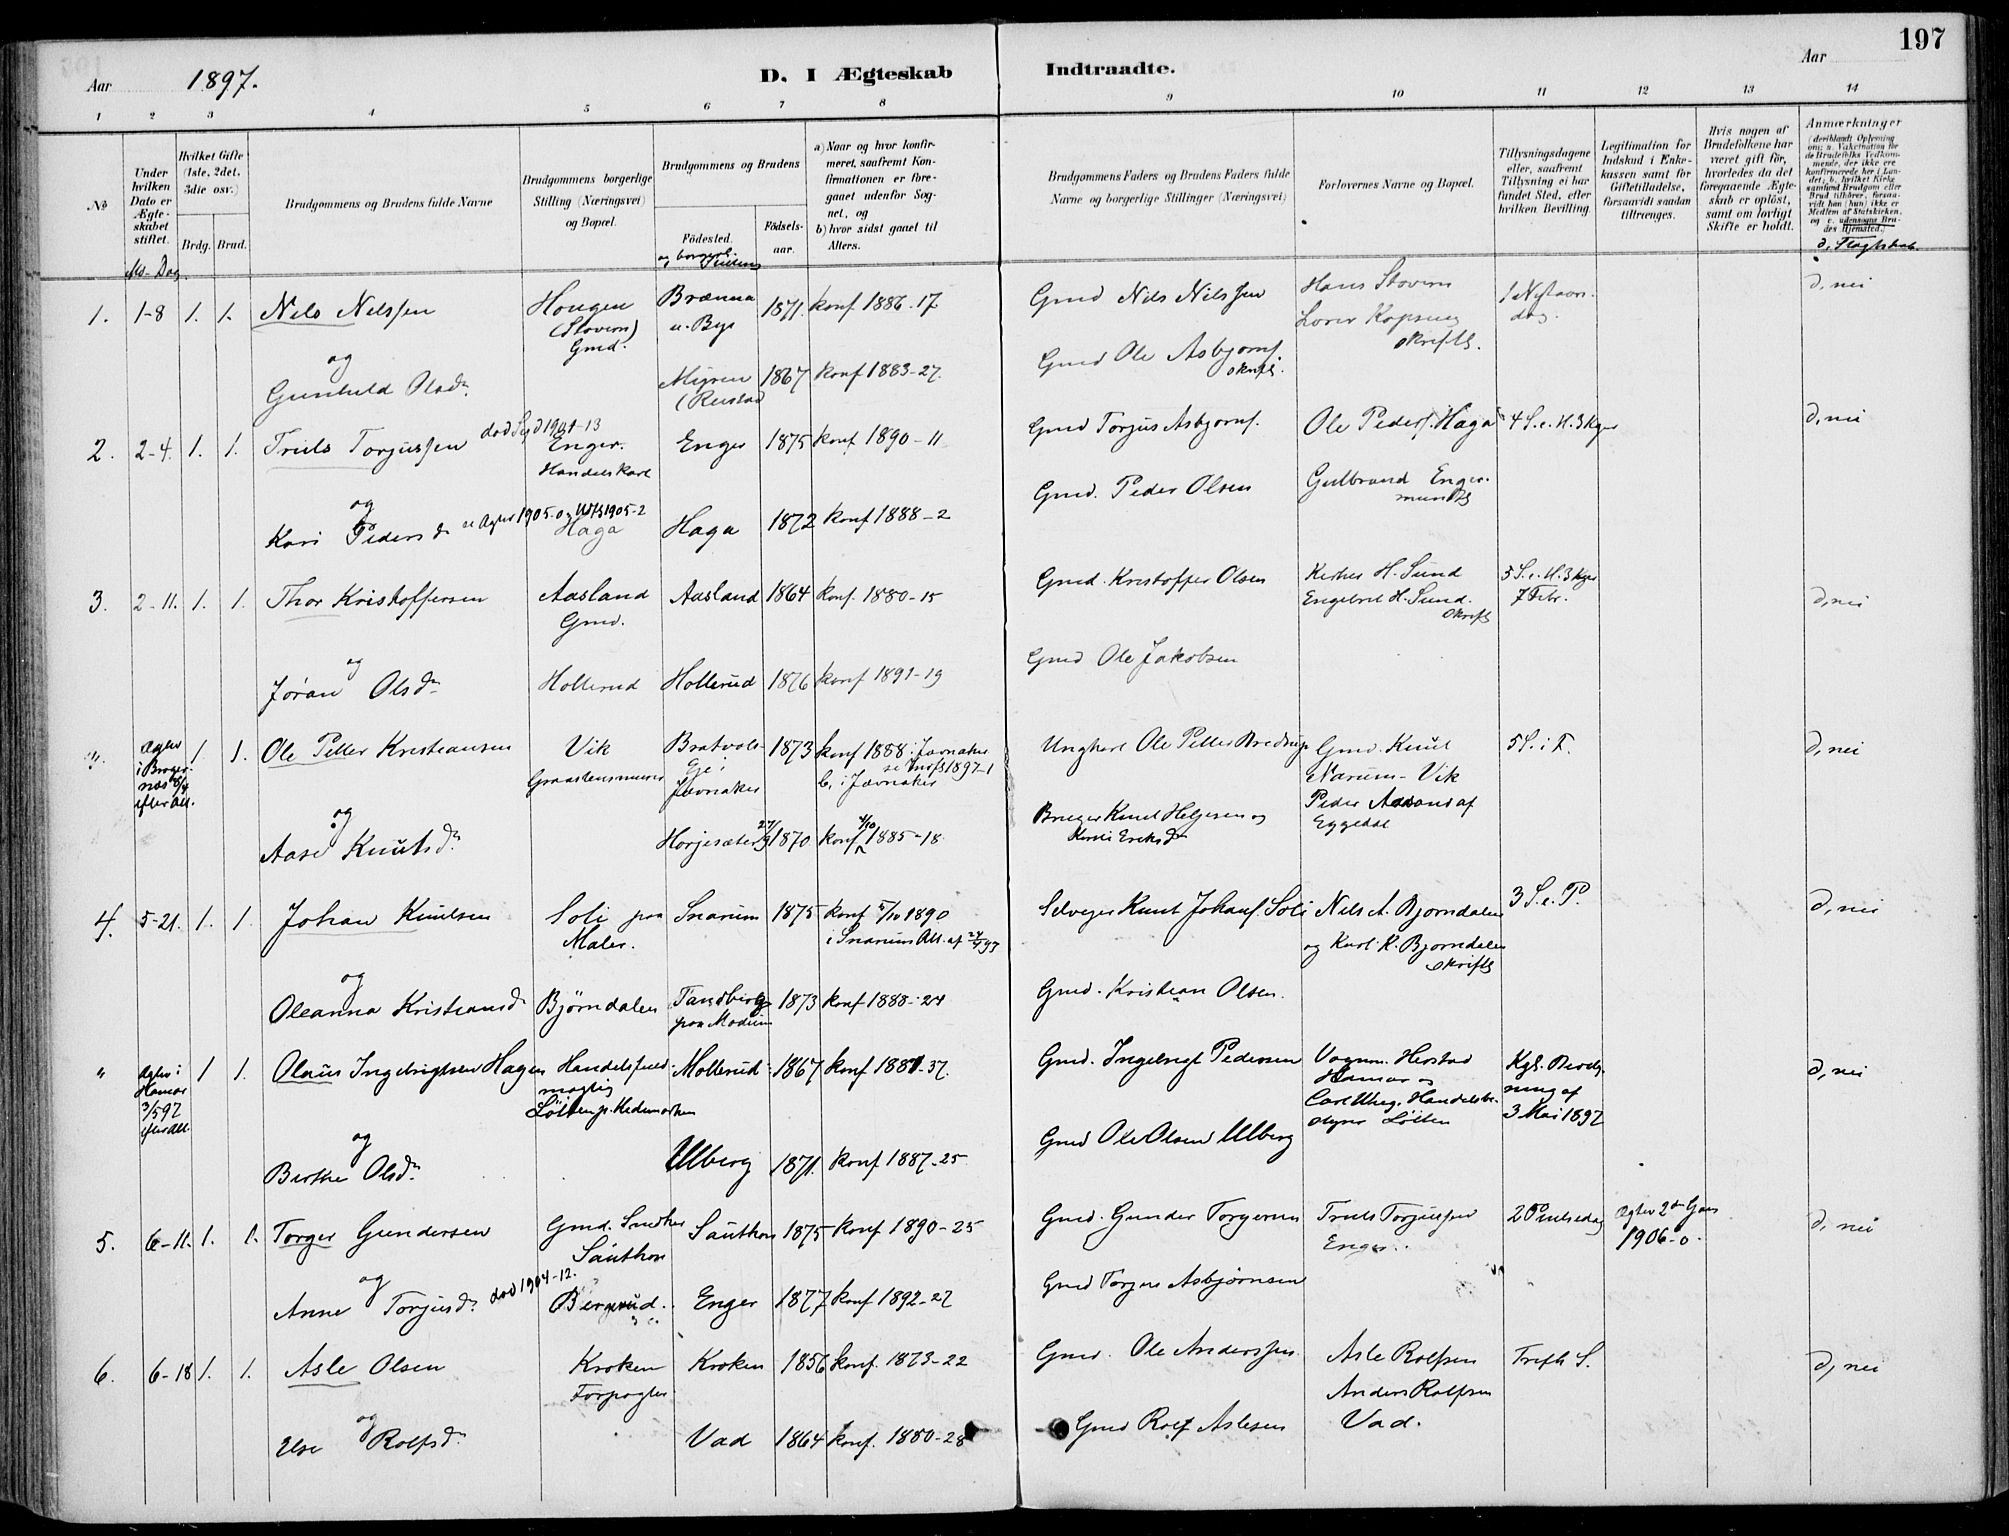 197
Aar 1897.
D. I Ægteskab Indtraadte.
Aar
1 2 3 4 5 6 7 8 9 10 11 12 13 14
No
Under hvilken Dato er Ægteskabet stiftet.
Hvilket Gifte (1ste, 2det, 3die osv.)
Brdg. Brud.
Brudgommens og Brudens fulde Navne
Brudgommens borgerlige Stilling (Næringsvei) og Bopæl.
Brudgommens og Brudens
Fødested.
Fødselsaar.
a) Naar og hvor konfirmeret, saafremt Konfirmationen er foregaaet udenfor Sognet, og
b) hvor sidst gaaet til Alters.
Brudgommens Faders og Brudens Faders fulde Navne og borgerlige Stillinger (Næringsvei)
Forlovernes Navne og Bopæl.
Tillysningsdagene eller, saafremt Tillysning ei har fundet Sted, efter hvilken Bevilling.
Legitimation for Indskud i Enkekassen samt for Giftetilladelse, forsaavidt saadan tiltrænges.
Hvis nogen af Brudefolkene har været gift før, hvorledes da det foregaaende Ægteskab er opløst, samt om lovligt Skifte er holdt.
Anmærkninger
(deriblandt Oplysning om: a. Vakcination for de Brudefolks Vedkommende, der ikke ere konfirmerede her i Landet; b. hvilket Kirkesamfund Brudgom eller Brud tilhører, forsaavidt han (hun) ikke er Medlem af Statskirken, og c. udensogns Brudes Hjemsted.)
d, Slægtskab
Md- Dag
og borgerl. Stilling
1. 1-8 1. 1. Nils Nilssen Hougen Brænna 1871. konf 1886-17 Gmd Nils Nilssen Hans Stovern 1 Nytaars- d, nei
(Stovern) u. Bye Lover Kopseng dag.
Gmd. skriftl.
og Gmd Ole Asbjørns.
Gunhild Olsdr. Myren 1867 konf 1883-27. skriftl.
(Rustad
2. 2-4. 1. 1. Truls Torjussen død 1901-13 Enger. Enger 1875 konf 1890-11 Gmd Torjus Asbjørns. Ole Peders. Haga 4 S. e. H. 3 Kger d, nei
Handelskarl
og Gmd. Peder Olsen Gulbrand Enger.
mundtl
Kari Pedersdr. Haga Haga 1872 konf 1888-2
3. 2-11. 1. 1. Thor Kristoffersen Aasland Aasland 1864 konf. 1880-15 Gmd. Kristoffer Olsen H. Sund 5 S. e. H. 3 Kger d, nei
Gmd. Engebret H. Sund. 7 Febr.
skriftl
og Gmd Ole Jakobsen
Jøran Olsdr. Hollerud Hollerud 1876 konf 1891-19
" Ægtev 1 1. Ole Petter Kristiansen Vik Bratvols- 1873 konf 1888 i Jævnaker Ungkarl Ole Petter Gmd. Knut 5 S. i F. d, nei
efter Att. Eje i Jævnaker b, i Jævnaker Narum - Vik
og Bruger Knut Helgesen og Peder Aasand af
Aase Knutsdr. Horjesæter 1870. konf 1885-18 Eriksdr Eggedal
4. 5-21. 1. 1. Johan Knutsen Soli paa Snarum 1875 konf 5/10 1890 Selveger Knut Johans. Soli Nils A. Bjørndalen 3 S. e. P. d, nei
Maler. i Snarum Att. af og Karl K. Bjørndalen
skriftl
og Gmd. Kristian Olsen.
Oleanna Kristiansdr Bjørndalen Tandberg 1873 konf 1888-24
paa Modum
" Ægtev i 1 1. Olaus Ingebrigtsen Hagen Handelsfuld- Mollerud 1867 konf 1881.37. Gmd. Ingebrigt Pedersen Herstad Kgl. Bevilg- d, nei
Hamar mægtig Hamar og ning af
3/5 97 Løiten p. Hedemarken Carl Uberg, Handelsbe- 3 Mai 1897
efter Att. styrer Løiten
og Gmd Ole Olsen Ulberg
Berthe Olsdr. Ulberg 1871. konf 1887-25
5. 6-11. 1. 1. Torger Gundersen Gmd. Snedker Sønthon 1875 konf 1890-25 Gmd. Gunder Torgersen Truls Torjussen 2 Pintsedag Ægtev 2den Gang d, nei
Sønthon Enger. 1906-0.
og død 1904-12. Gmd Torjus Asbjørnsen
Anne Torjusdr. Bergerud. Enger 1877 konf 1892-27
6. 6-18 1. 1. Asle Olsen Kroken Kroken 1856 konf. 1873-22 Gmd. Ole Anderssen Asle Rolfsen Trefh S. d, nei
Forpagter Anders Rolfsen
og Gmd Rolf Aslesen Vad.
Else Rolfsdr. Vad 1864 konf. 1880-28